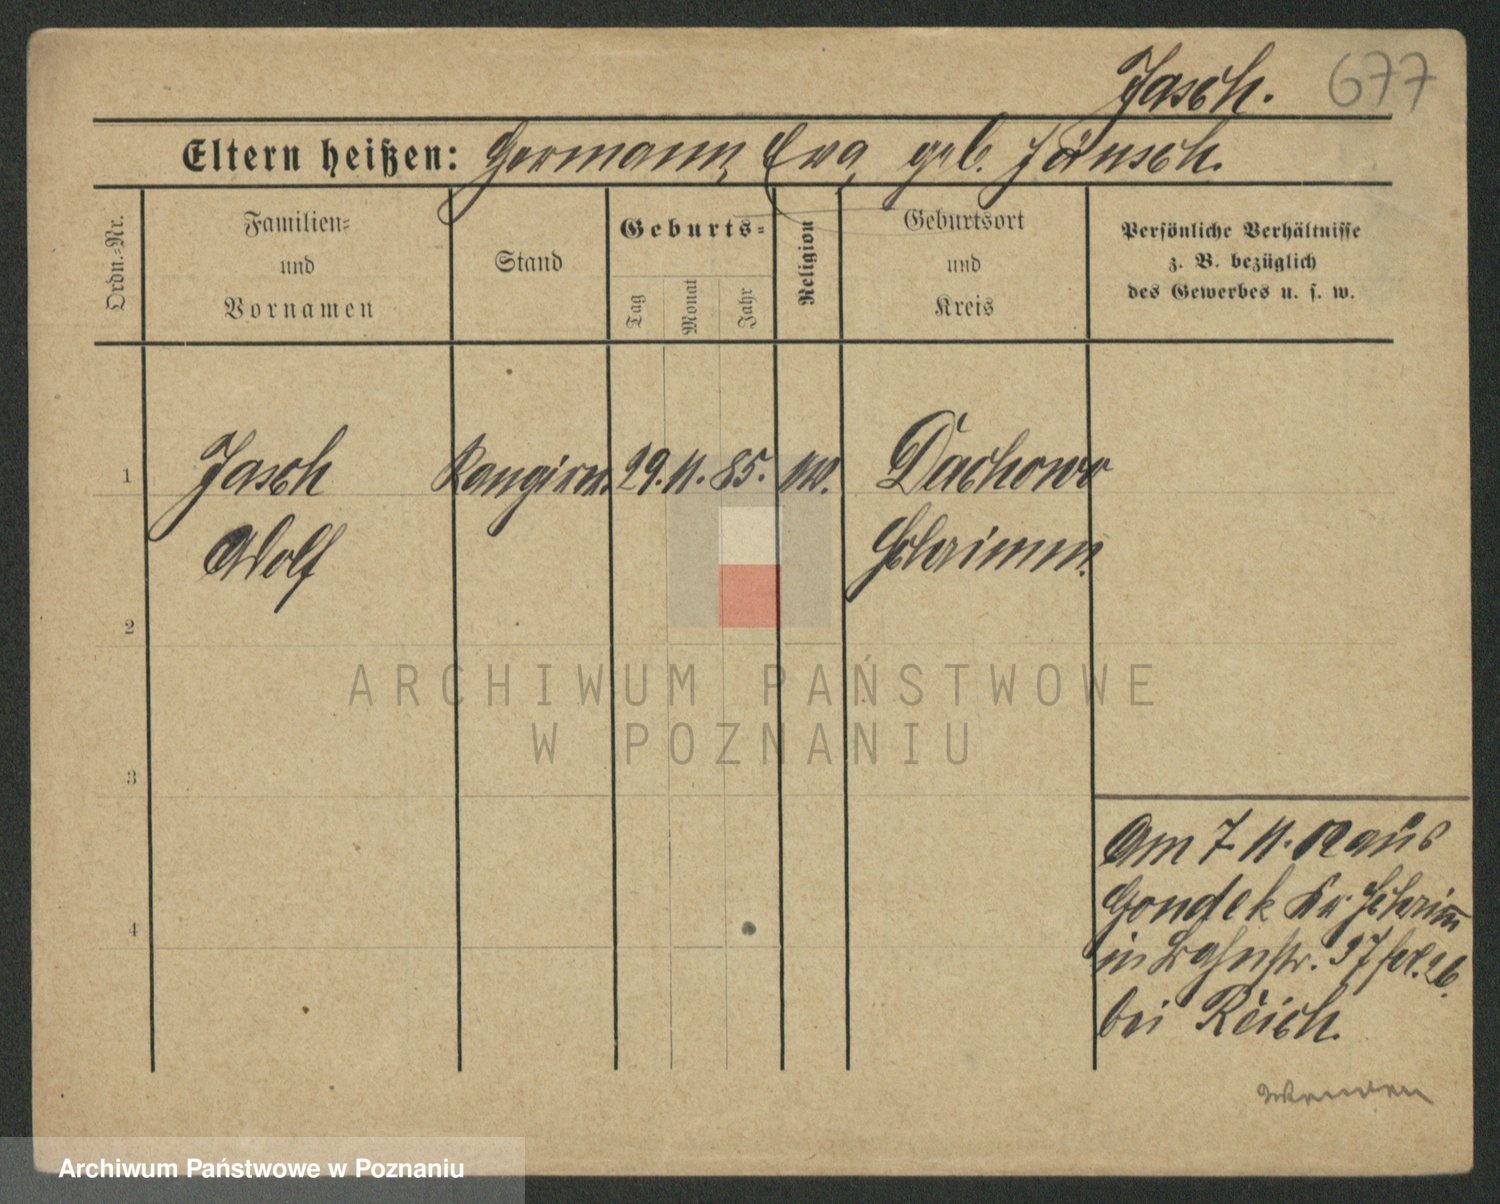 Jasch. 677
Eltern heißen: Hermann, Eva, geb. Jänsch.
Ordn.=Nr.
Familien=
und
Vornamen
Stand
Geburts=
Tag
Monat
Jahr
Religion
Geburtsort
und
Kreis
Persönliche Verhältnisse
z. B. bezüglich
des Gewerbes u. s. w.
1 Jasch Rangirer. 29. 11. 85. ev. Dachowo
Adolf Schrimm.
2
3
4
Am 7. 11. aus
Gondek Kr. Schrimm
in Bahnstr. 37
bei Reich.
Wenden
ARCHIWUM PAŃSTWOWE
W POZNANIU
Archiwum Państwowe w Poznaniu